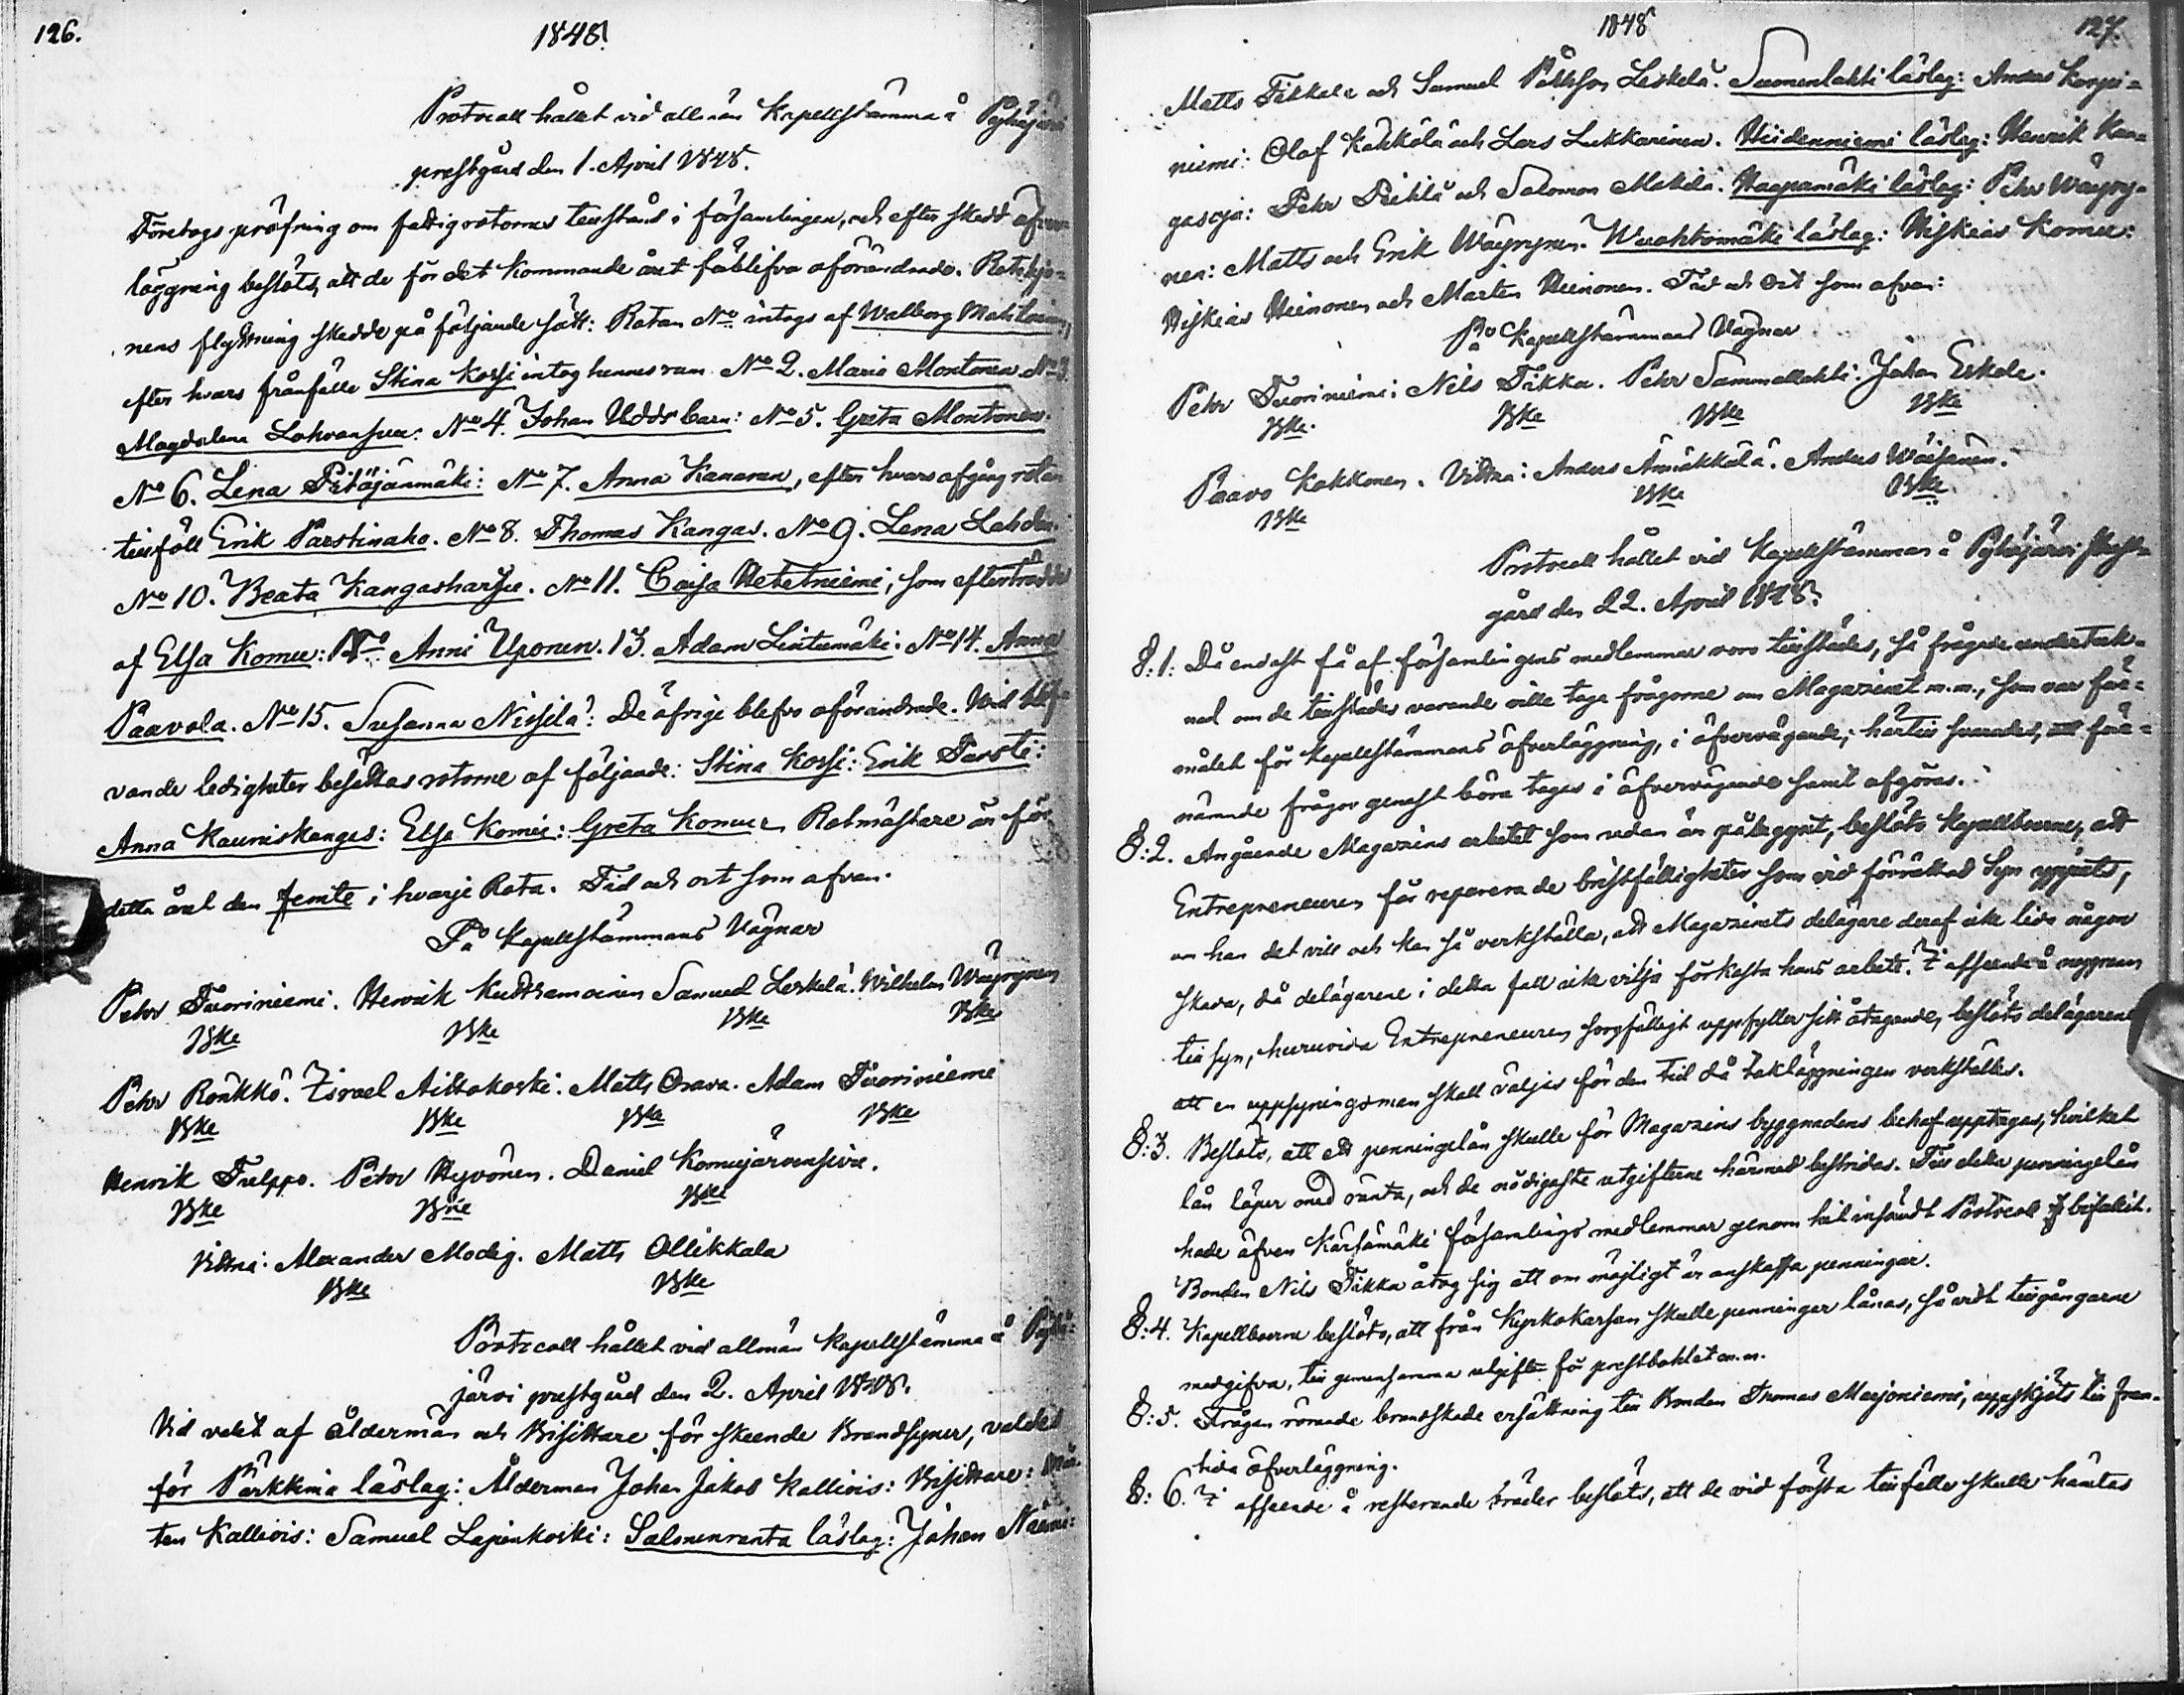 126.
1848.
Protocoll hållet vid allmän Kapellstämma å Pyhäjärvi
prestgård den 1. April 1848.
Företogs pröfning om fattigrotornes tillstånd i församlingen, och efter skedd öfver-
läggning beslöts, att de för det kommande året förblifva oförändrade. Rotehjo-
nens flyttning skedde på följande sätt: Rotan No intogs af Walborg
efter hvars frånfälle Stina Kossi intog hennes rum. No 2. Maria Montonen. No 3.
Magdalena Lohvansuu: No 4. Johan Udds barn: No 5. Greta Montonen.
No 6. Lena Pitäjänmäki: No 7. Anna Kanaren, efter hvars afgång rotan
tillföll Erik Parstinaho. No 8. Thomas Kangas. No 9. Lena
No 10. Beata Kangasharju. No 11. Caisa Hetetniemi, som efterträddes
af Elsa Komu: Anni Uponen. 13. Adam Lintumäki: No 14. Anna
Paavola. No 15. Susanna Nissilä: De öfrige blefvo oförändrade. Vid blif-
vande ledigheter besättas rotorne af följande: Stina Kossi: Erik Parsti:
Anna Kauniskangas: Elsa Komu: Greta Komu. Rotmästare är för
detta året den femte i hvarje Rota. Tid och ort som ofvan.
På Kapellstämmans Vägnar
Pehr Tuoriniemi. Henrik Samuel Leskelä. Wilhelm Wäyrynen
Bke Bke Bke Bke
Pehr Rönkkö. Israel Aittokoski. Matts Orava. Adam Tuoriniemi
Bke Bke Bke Bke
Henrik Tulppo. Petter Hyvönen. Daniel Komujärvensivu.
Bke Bne Bke
Vittna: Alexander Modig. Matts Ollikkala
Bke Bke
Protocoll hållet vid allmän Kapellstämma å Pyhä-
järvi prestgård den 2. April 1848.
Vid valet af Ålderman och Bisittare för skeende Brandsyner, valdes
för Parkkima läslag: Ålderman Johan Jakob Kalliois: Bisittare: Mår-
ten Kalliois: Samuel Lapinkoski: Salmenranta läslag: Johan
1848
127.
Matts Tikkala och Samuel Leskelä. Suomenlahti läslag: Anders Karja-
niemi: Olof Kakkola och Lars Lukkarinen. Hiidenniemi läslag: Henrik Kan-
gasoja: Pehr Pihlå och Salomon Makila. Haapamäki läslag: Pehr Wäyry-
nen: Matts och Erik Wäyrynen. Wuohtomäki läslag: Hiskias Komu:
Hiskias Heinonen och Marten Heinonen. Tid och Ort som ofvan:
På Kapellstämmans Vägnar
Pehr Tuoriniemi: Nils Tikka. Pehr Sammallahti. Johan Eskola.
Bke. Bke Bke Bke
Paavo Kokkonen. Vittna: Anders Annakkala. Anders Wäisänen.
Bke Bke Bke
Protocoll hållet vid Kapellstämman å Pyhäjärvi Prest-
gård den 22. April 1848.
§: 1. Då endast få af församlingens medlemmar voro tillstädes, så frågade underteck-
nad om de tillstädes varande ville taga frågorne om Magazinet m.m., som var före-
målet för Kapellstämmans öfverläggning, i öfvervägande; härtill svarades, att före-
nämnde frågor genast böra tagas i öfvervägande samt afgöras.
§: 2. Angående Magazins arbetet som redan är påbegynt, beslöto Kapellboerne, att
Entrepreneuren får reparera de bristfälligheter som vid förrättad Syn yppats,
om han det vill och kan så verkställa, att Magazinets delägare deraf icke lida någon
skada, då delägarene i detta fall icke vilja förkasta hans arbete. I afseende å noggrann
tillsyn, huruvida Entrepreneuren sorgfälligt uppfyller sitt åtagande, beslöto delägarene
att en uppsyningsman skall väljas för den tid då takläggningen verkställes.
§: 3. Beslöts, att ett penningelån skulle för Magazins byggnadens behof upptagas, hvilket
lån löper med ränta, och de nödigaste utgifterne härmed bestridas. Till detta penningelån
hade äfven Kärsämäki församlings medlemmar genom hit insändt Protocoll bifallit.
Bonden Nils Tikka åtog sig att om möjligt är anskaffa penningar.
§: 4. Kapellboerne beslöto, att från Kyrkokassan skulle penningar lånas, så vidt tillgångarne
medgifva, till gemensamma utgifter för prestbohlet m.m.
§: 5. Frågan rörande brandskade ersättning till Bonden Thomas Marjoniemi, uppskjöts till fram-
tida öfverläggning.
§: 6. I afseende å resterande bräder beslöts, att de vid första tillfälle skulle hämtas